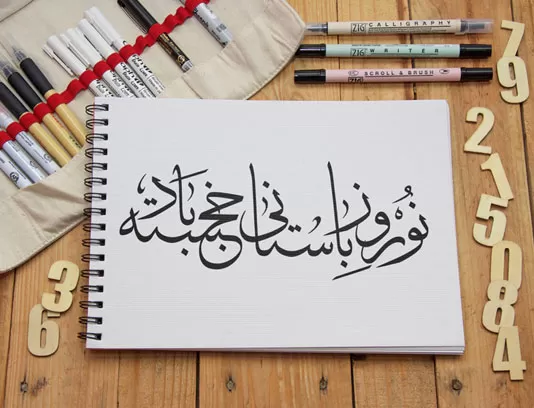 ZIG CALLIGRAPHY
ZIG WRITER
ZIG SCROLL & BRUSH
نُوروز باستانی خجسته باد
7
9
2
1
5
0
8
4
3
6